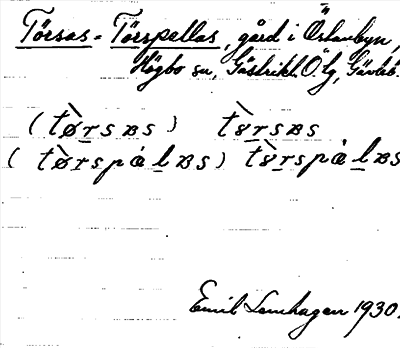 Törsas - Törspallas, gård i Östanbyn,
Högbo sn, Gästrikl. Ö. lg, Gävleb.
(tø̀rsɐs) tɤ̀rsɐs
(tø̀rspálɐs) tɤ̀rspàlɐs
Emil Lemhagen 1930.